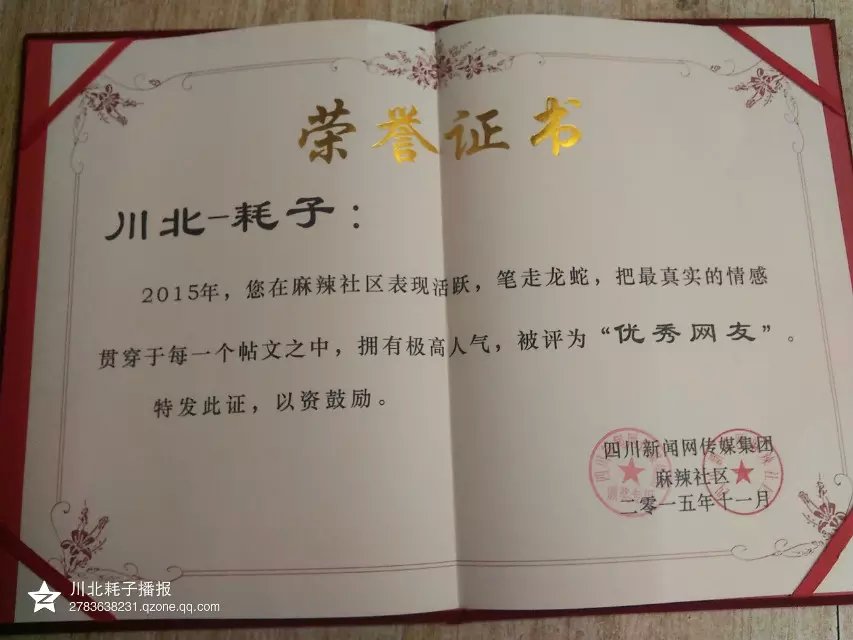 荣誉证书
川北-耗子：
2015年，您在麻辣社区表现活跃，笔走龙蛇，把最真实的情感
贯穿于每一个帖文之中，拥有极高人气，被评为“优秀网友”。
特发此证，以资鼓励。
四川新闻网传媒集团
麻辣社区
二零一五年十一月
川北耗子播报
2783638231.qzone.qq.com